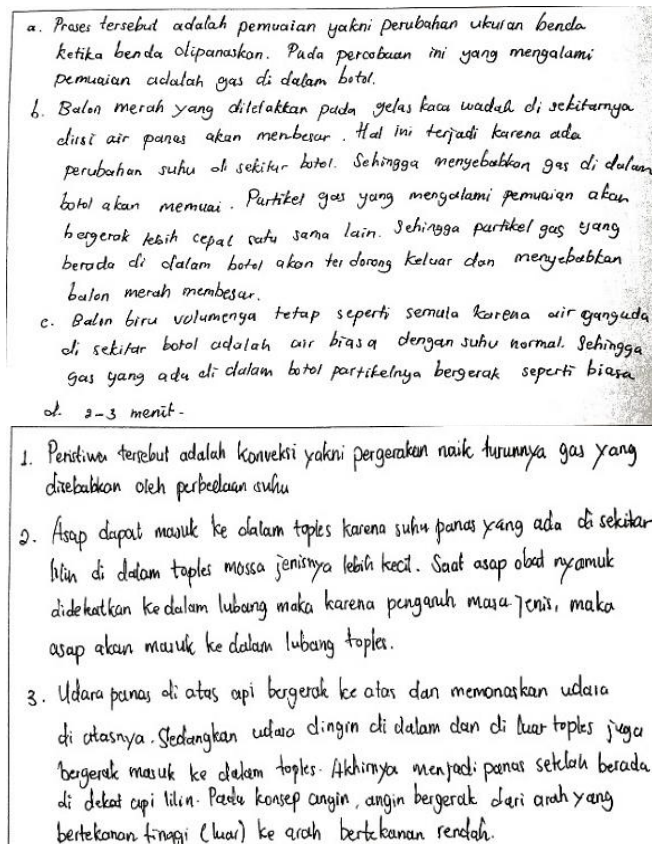 a. Proses tersebut adalah pemuaian yakni perubahan ukuran benda
ketika benda dipanaskan. Pada percobaan ini yang mengalami
pemuaian adalah gas di dalam botol.
b. Balon merah yang diletakkan pada gelas kaca wadah di sekitarnya
diisi air panas akan membesar. Hal ini terjadi karena ada
perubahan suhu di sekitar botol. Sehingga menyebabkan gas di dalam
botol akan memuai. Partikel gas yang mengalami pemuaian akan
bergerak lebih cepat satu sama lain. Sehingga partikel gas yang
berada di dalam botol akan terdorong keluar dan menyebabkan
balon merah membesar.
c. Balon biru volumenya tetap seperti semula karena air yang ada
di sekitar botol adalah air biasa dengan suhu normal. Sehingga
gas yang ada di dalam botol partikelnya bergerak seperti biasa
d. 2-3 menit.
1. Peristiwa tersebut adalah konveksi yakni pergerakan naik turunnya gas yang
disebabkan oleh perbedaan suhu
2. Asap dapat masuk ke dalam toples karena suhu panas yang ada di sekitar
lilin di dalam toples massa jenisnya lebih kecil. Saat asap obat nyamuk
didekatkan ke dalam lubang maka karena pengaruh masa jenis, maka
asap akan masuk ke dalam lubang toples.
3. Udara panas di atas api bergerak ke atas dan memanaskan udara
di atasnya. Sedangkan udara dingin di dalam dan di luar toples juga
bergerak masuk ke dalam toples. Akhirnya menjadi panas setelah berada
di dekat api lilin. Pada konsep angin, angin bergerak dari arah yang
bertekanan tinggi (luar) ke arah bertekanan rendah.